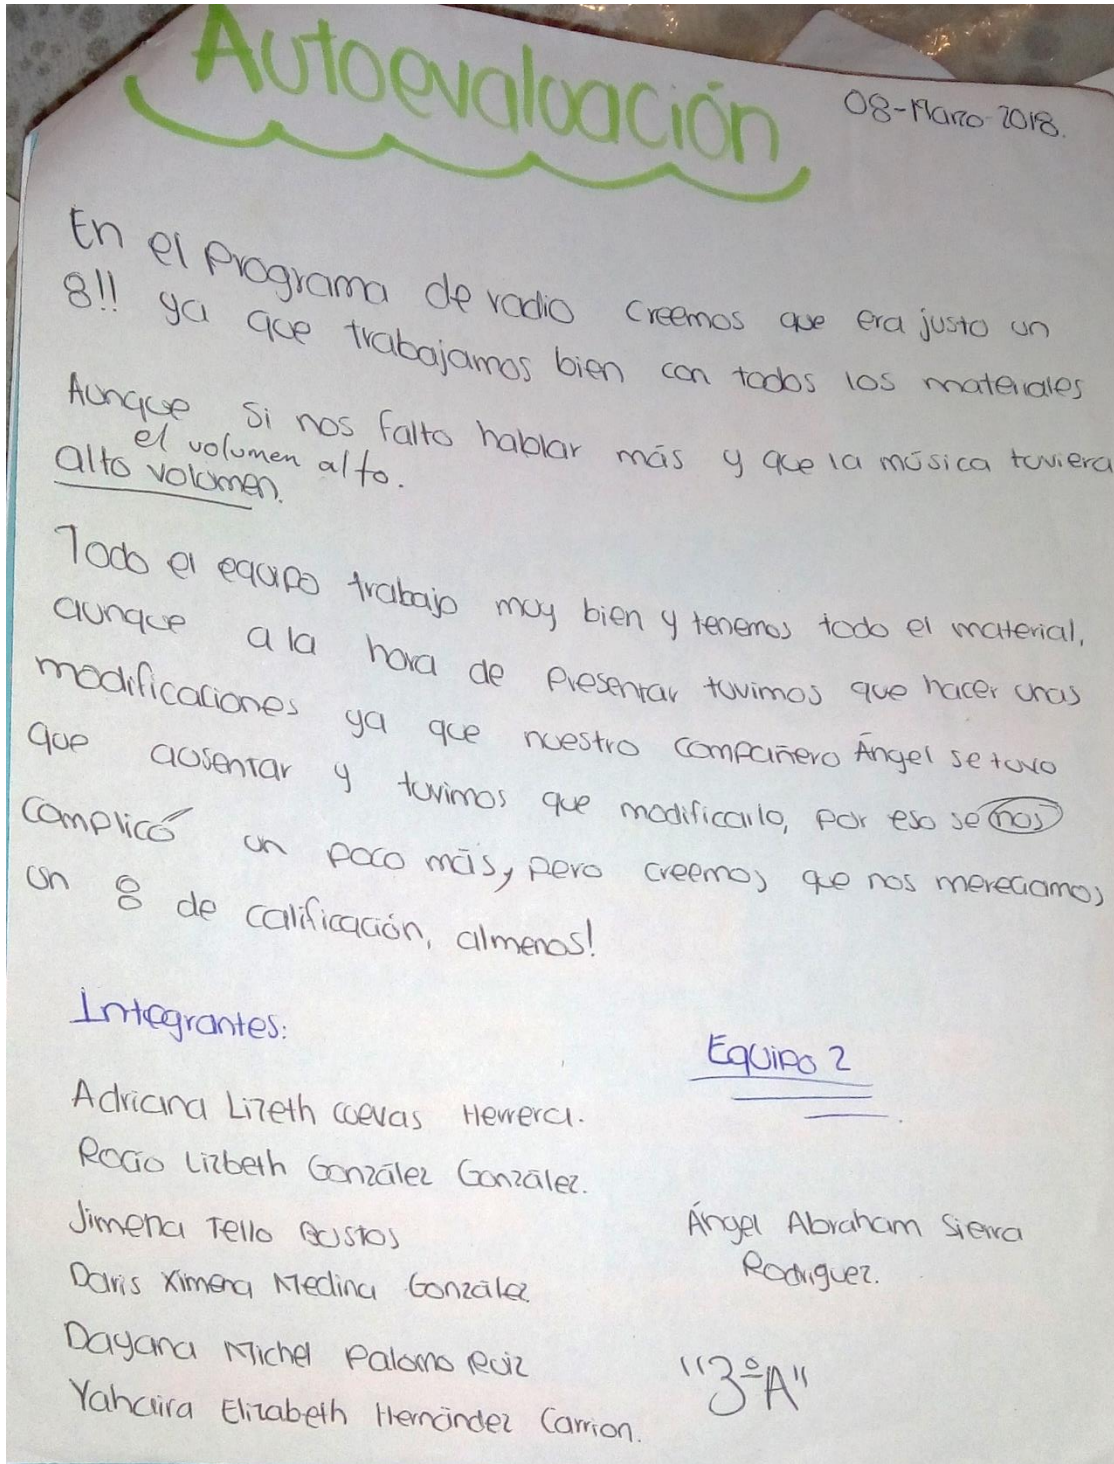 Autoevaluación
08-Marzo-2018.
En el Programa de radio creemos que era justo un
8!! ya que trabajamos bien con todos los materiales
Aunque si nos falto hablar más y que la música tuviera
el volumen alto.
alto volúmen.
Todo el equipo trabajo muy bien y tenemos todo el material,
aunque a la hora de Presentar tuvimos que hacer unas
modificaciones ya que nuestro compañero Ángel se tuvo
que ausentar y tuvimos que modificarlo, por eso se nos
complicó un poco más, pero creemos que nos mereciamos
un 8 de calificación, almenos!
Integrantes:
Equipo 2
Adriana Lizeth Cuevas Herrera.
Rocio Lizbeth González González.
Jimena Tello Bustos
Daris Ximena Medina González
Dayana Michel Palomo Ruiz
Yahaira Elizabeth Hernández Carrion.
Ángel Abraham Sierra
Rodriguez.
"3ºA"